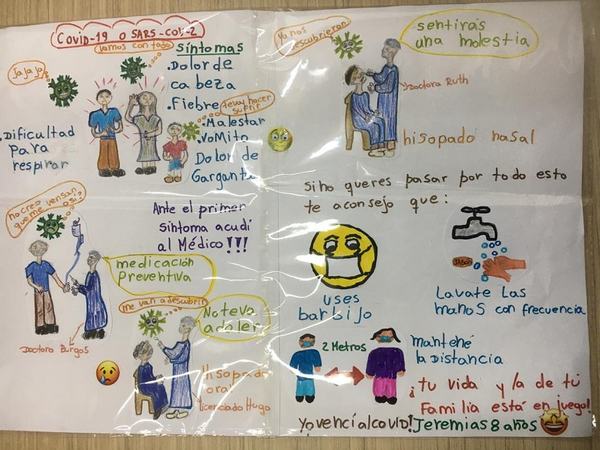 Covid-19 o SARS-COV-2
vamos con todo
síntomas
Jajaja
.Dolor de
cabeza
.Fiebre
te voy a hacer
sufrir
.Malestar
.Vomito
Dolor de
Garganta
.Dificultad
Para
respirar
Ante el primer
sintoma acudí
al Médico!!!
no creo
que me vensan
asi?
medicación
Preventiva
Doctora Burgos
me van a descubrir
No te va
a doler
Hisopado
oral
licenciado Hugo
Ya nos
descubrieron
sentirás
una molestia
Doctora Ruth
hisopado nasal
Si no queres pasar por todo esto
te aconsejo que:
uses
barbijo
JABON
Lavate Las
manos con frecuencia
2 Metros
mantené
la Distancia
¡tu vida y la de tú
Familia está en juego!
Yo vencí al covid! Jeremias 8 años